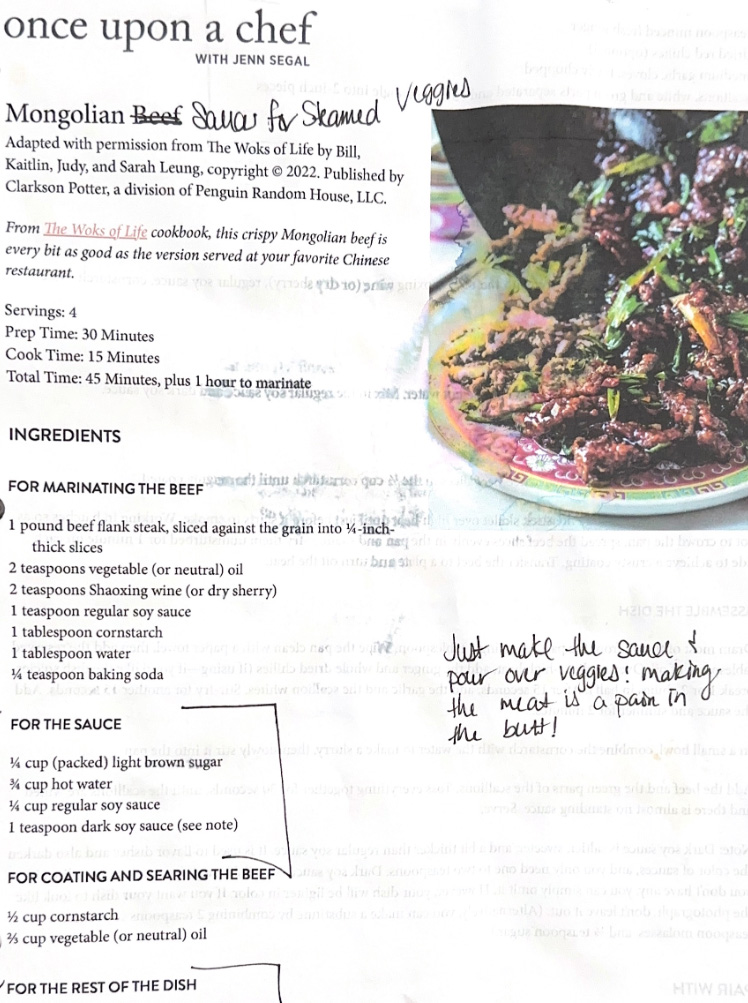 once upon a chef
WITH JENN SEGAL
Mongolian Beef Sauce for Steamed Veggies
Adapted with permission from The Woks of Life by Bill,
Kaitlin, Judy, and Sarah Leung, copyright © 2022. Published by
Clarkson Potter, a division of Penguin Random House, LLC.
From The Woks of Life cookbook, this crispy Mongolian beef is
every bit as good as the version served at your favorite Chinese
restaurant.
Servings: 4
Prep Time: 30 Minutes
Cook Time: 15 Minutes
Total Time: 45 Minutes, plus 1 hour to marinate
INGREDIENTS
FOR MARINATING THE BEEF
1 pound beef flank steak, sliced against the grain into ¼-inch-
thick slices
2 teaspoons vegetable (or neutral) oil
2 teaspoons Shaoxing wine (or dry sherry)
1 teaspoon regular soy sauce
1 tablespoon cornstarch
1 tablespoon water
¼ teaspoon baking soda
Just make the sauce &
pour over veggies! making
the meat is a pain in
the butt!
FOR THE SAUCE
¼ cup (packed) light brown sugar
¾ cup hot water
¼ cup regular soy sauce
1 teaspoon dark soy sauce (see note)
FOR COATING AND SEARING THE BEEF
½ cup cornstarch
⅔ cup vegetable (or neutral) oil
FOR THE REST OF THE DISH